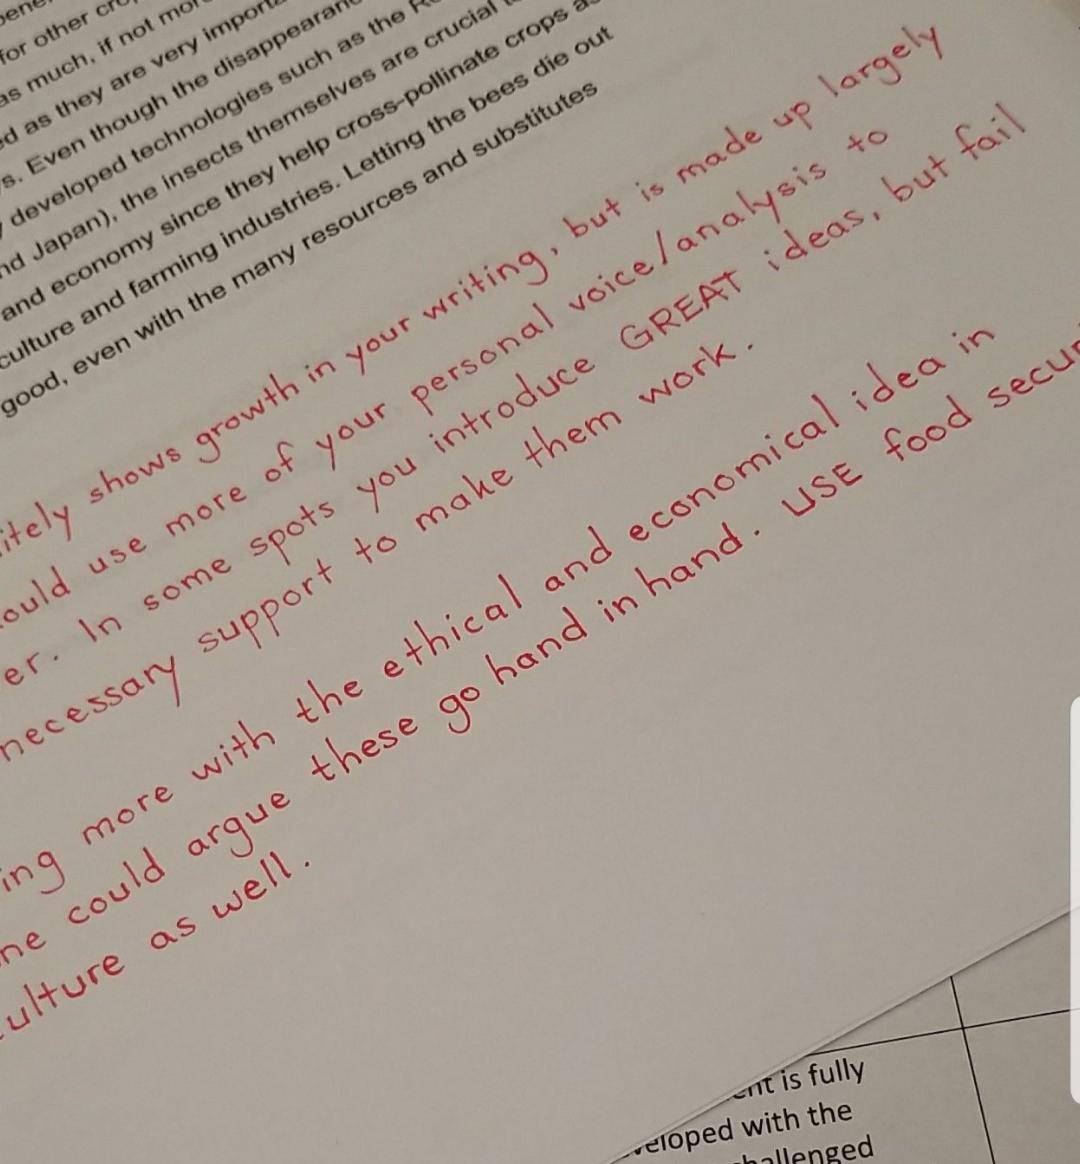 for other
as much, if not
as they are very
s. Even though the
developed technologies such as the
Japan), the insects themselves are crucial
and economy since they help cross-pollinate crops
and farming industries. Letting the bees die out
good, even with the many resources and substitutes
shows growth in your writing, but is made up largely
use more of your personal voice/analysis to
In some spots you introduce GREAT ideas, but fail
necessary support to make them work.
more with the ethical and economical idea in
could argue these go hand in hand. USE food
as well.
is fully
with the